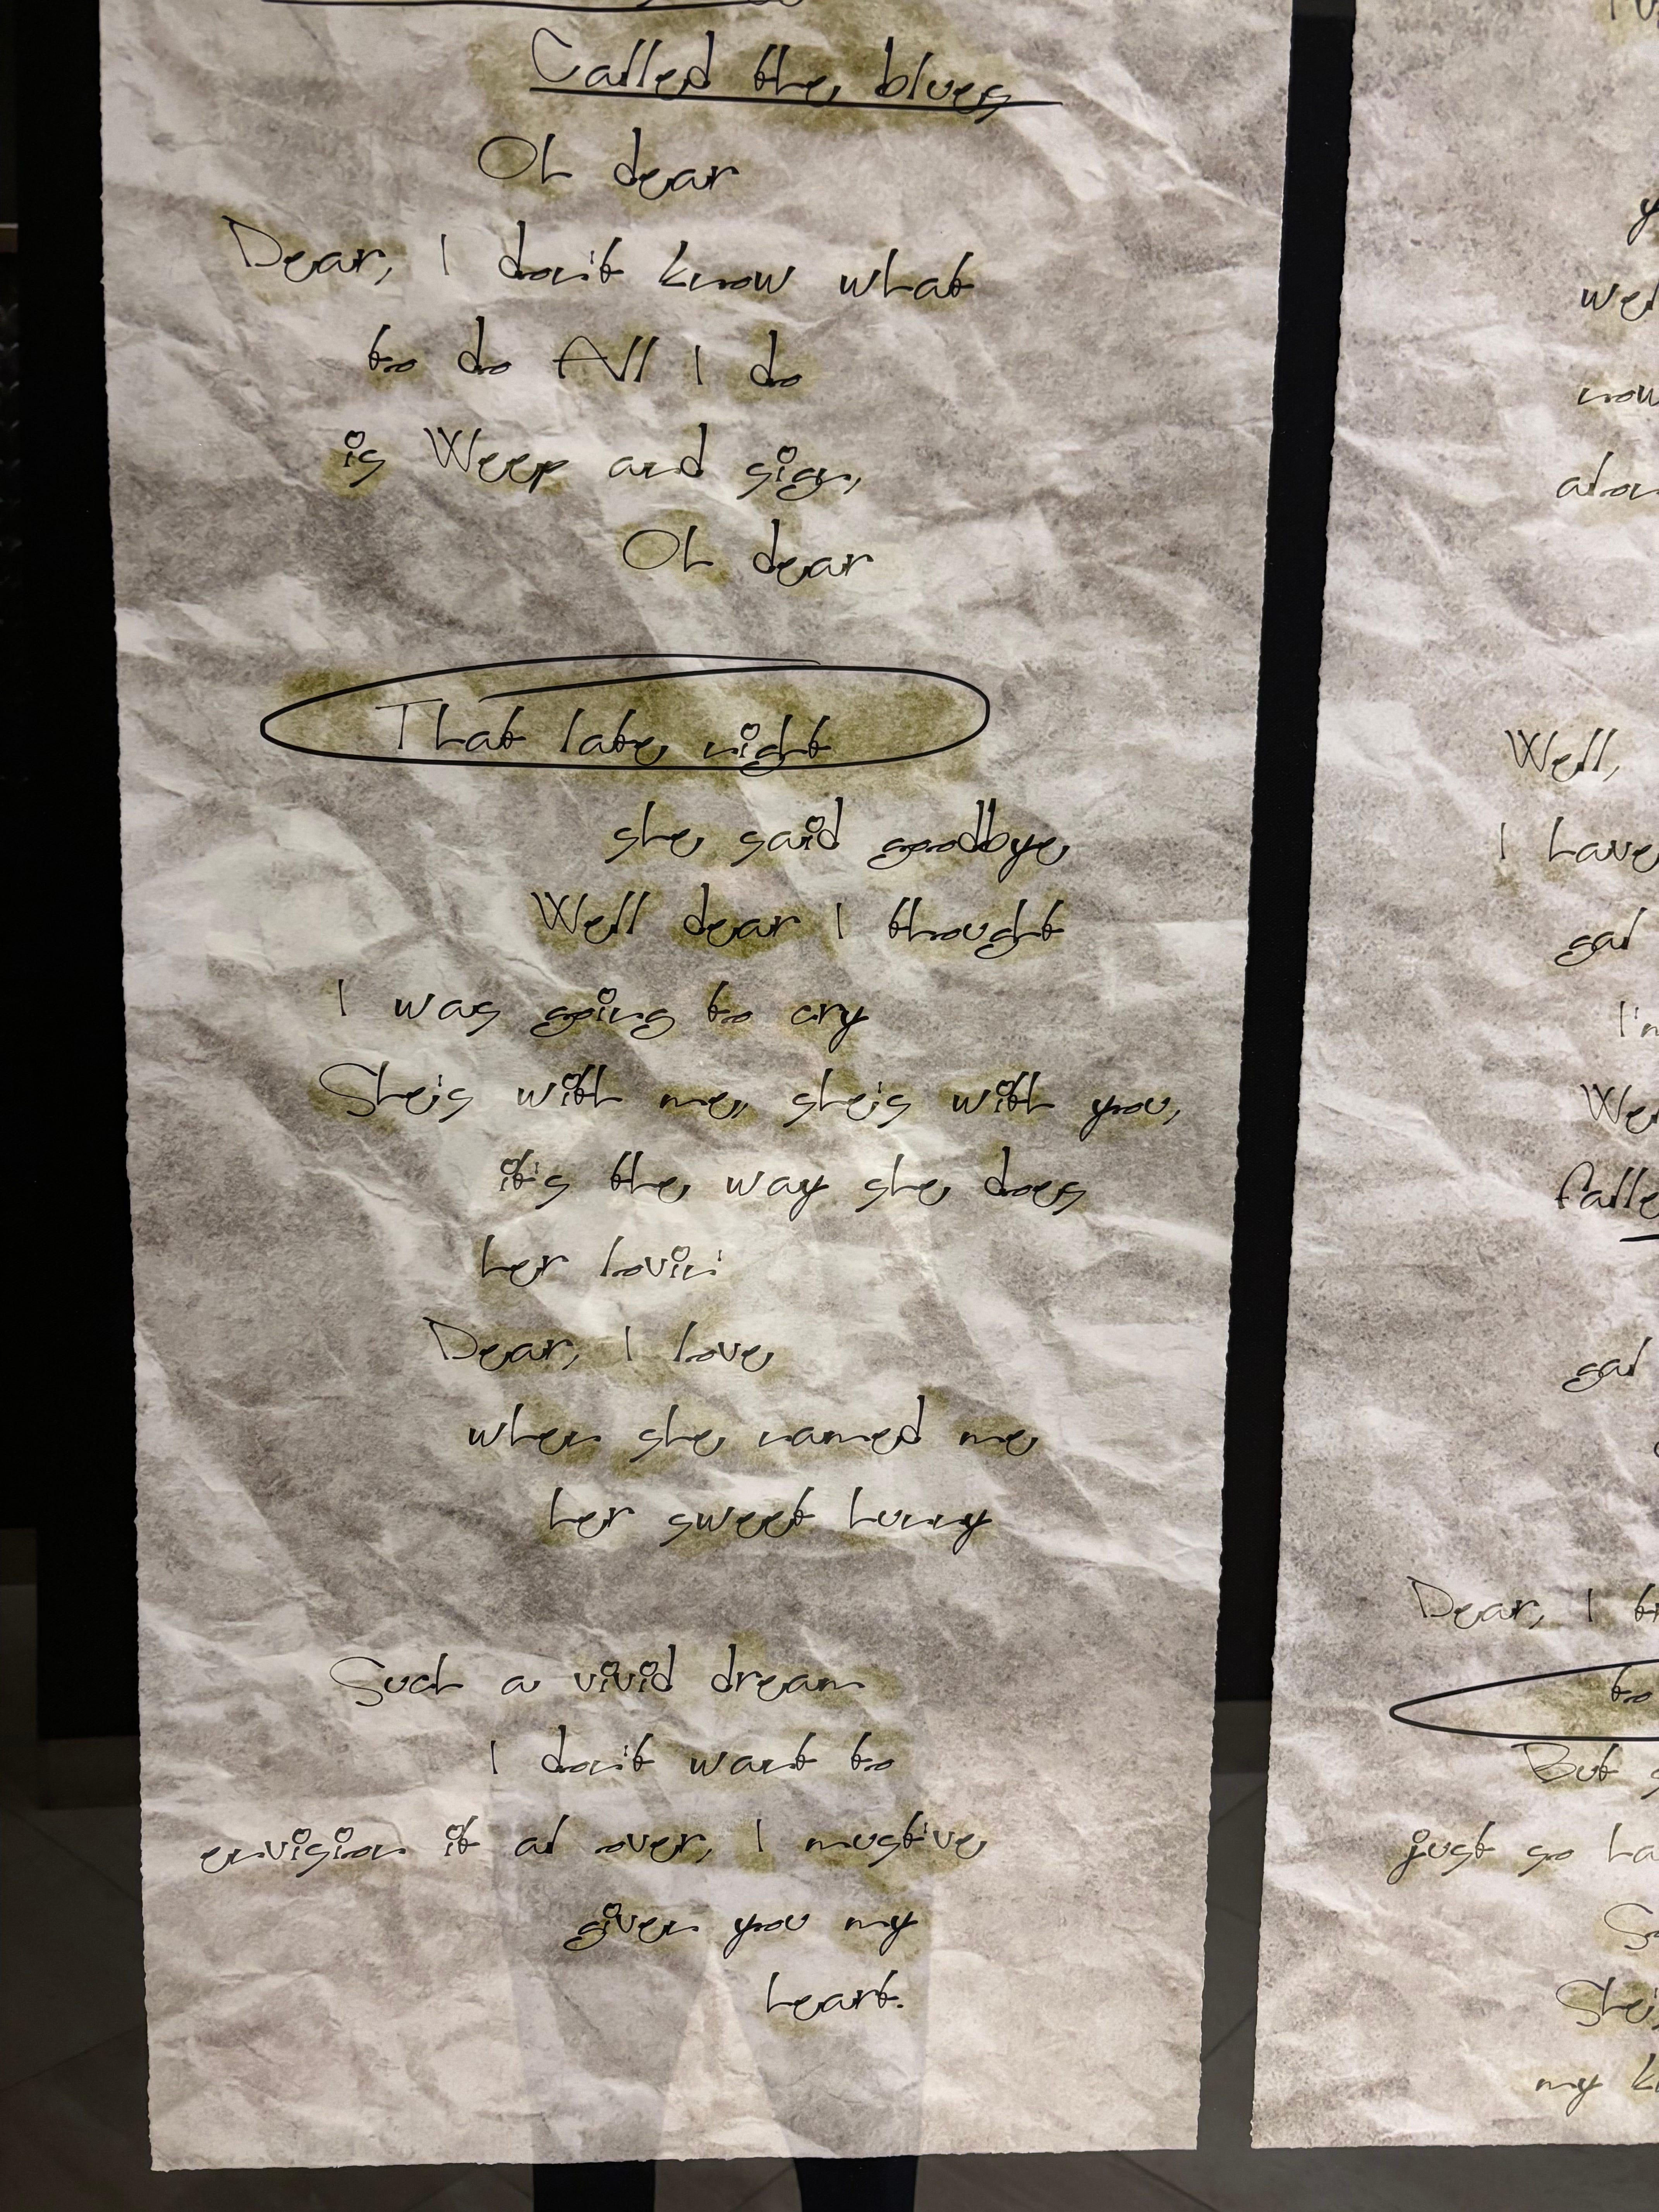 Called the blues
Oh dear
Dear, I don't know what
to do All I do
is Weep and sign,
Oh dear
That late night
she said goodbye
Well dear I thought
I was going to cry
She's with me, she's with you,
it's the way she does
her lovin'
Dear, I love
when she named me
her sweet hunny
Such a vivid dream
I don't want to
envision it al over, I must've
given you my
heart.
Well,
I have
sad
I'm
sad
Dear, I
to
But
just so
my